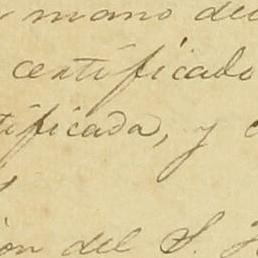 mano del
certificado
tificada, y
ion del S.